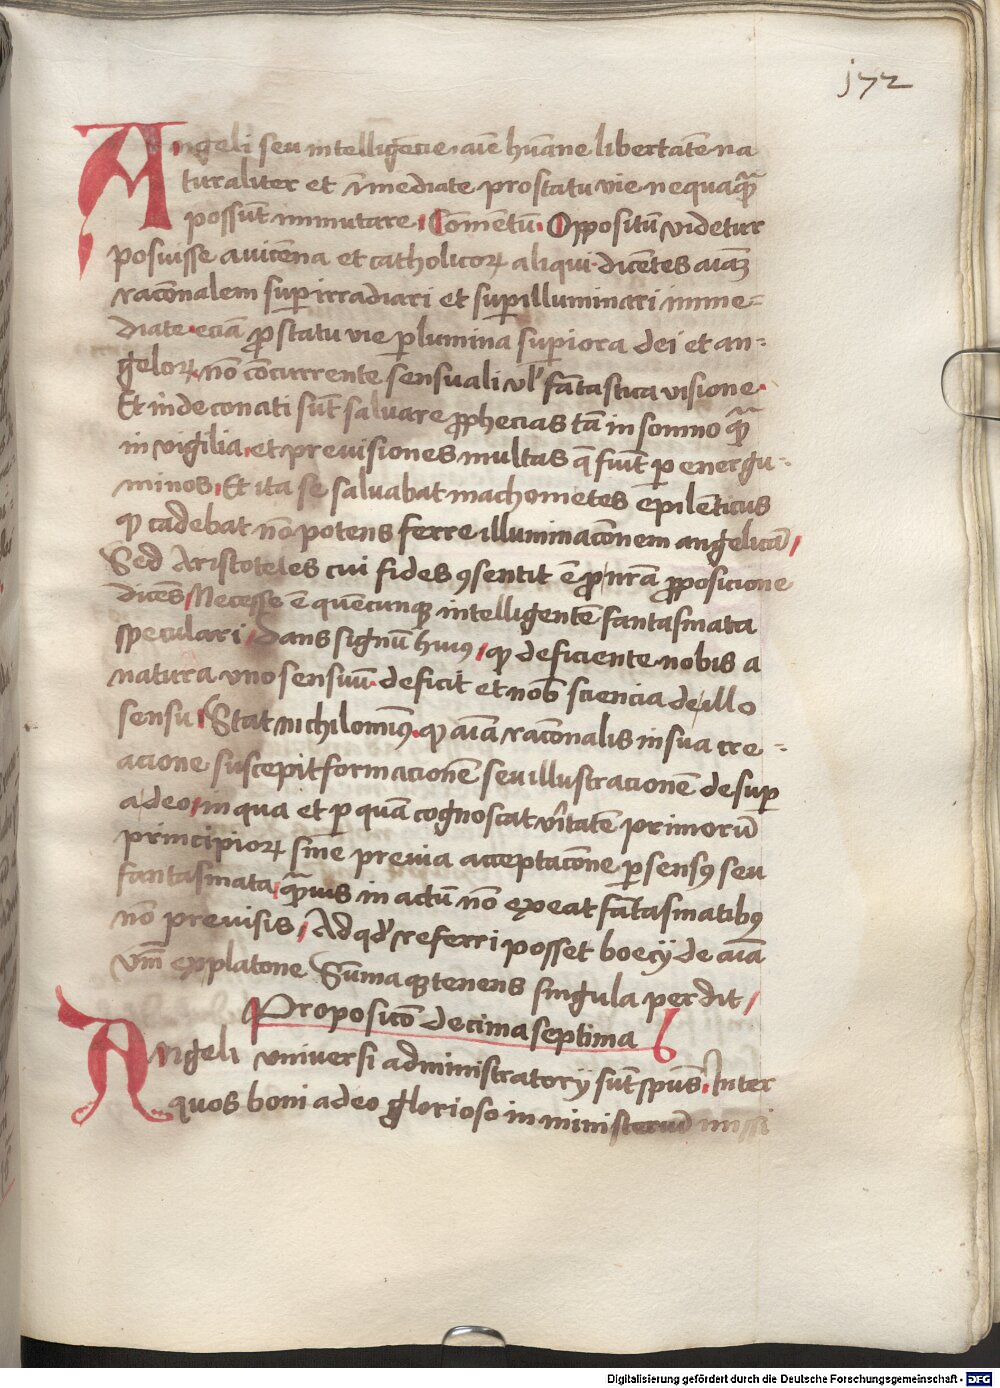 172
Angeli seu intelligēcie aīe hūane libertatē na
turaliter et īmediate pro statu vie nequaqȝ̄
possūt immutare. Cōmentū. Oppositū videtur
posuisse avicēna et catholicoꝝ aliqui dicētes aīaꝫ
racōnalem suꝑirradiari et suꝑilluminari imme=
diate eciā ꝓ statu vie ꝑ lumina suꝑiora dei et an=
geloꝝ nō cōcurrente sensuali vl' fātastica visione.
Et īnde conati sūt salvare ꝓphecias tā in somno qȝ̄
in vigilia, et previsiones multas q̄ fiūt ꝑ energu=
minos, Et ita se salvabat machometes epilēticus
ꝙ cadebat nō potens ferre illuminacōnem angelicā/
Sed Aristoteles cui fides ꝯsentit ē ꝓ nr̄am ꝓposicione
dicēs Necesse ē quēcunqȝ intelligentē fantasmata
speculari, Dans signū huiꝰ, ꝙ deficiente nobis a
natura uno sensuū. deficit et nob̄ sciencia de illo
sensu, Stat nichilominꝰ. ꝙ aīa racōnalis in sua cre=
acione suscepit formacionē seu illustracionē desuꝑ
a deo, in qua et ꝑ quā cognoscat v̄itatē primorū
principioꝝ sine previa acceptacōne ꝑ sensꝰ seu
fantasmata, qȝ̄vis in actū nō exeat fātasmatibꝰ
nō previsis, Ad qd̄ referri posset boecij de aīa
vm̄ ex platone Sūma qȝ tenens singula perdit/
Proposicō decima septima
Angeli universi administratorij sūt spūs. Inter
quos boni a deo glorioso in ministeriū missi
Digitalisierung gefördert durch die Deutsche Forschungsgemeinschaft - DFG